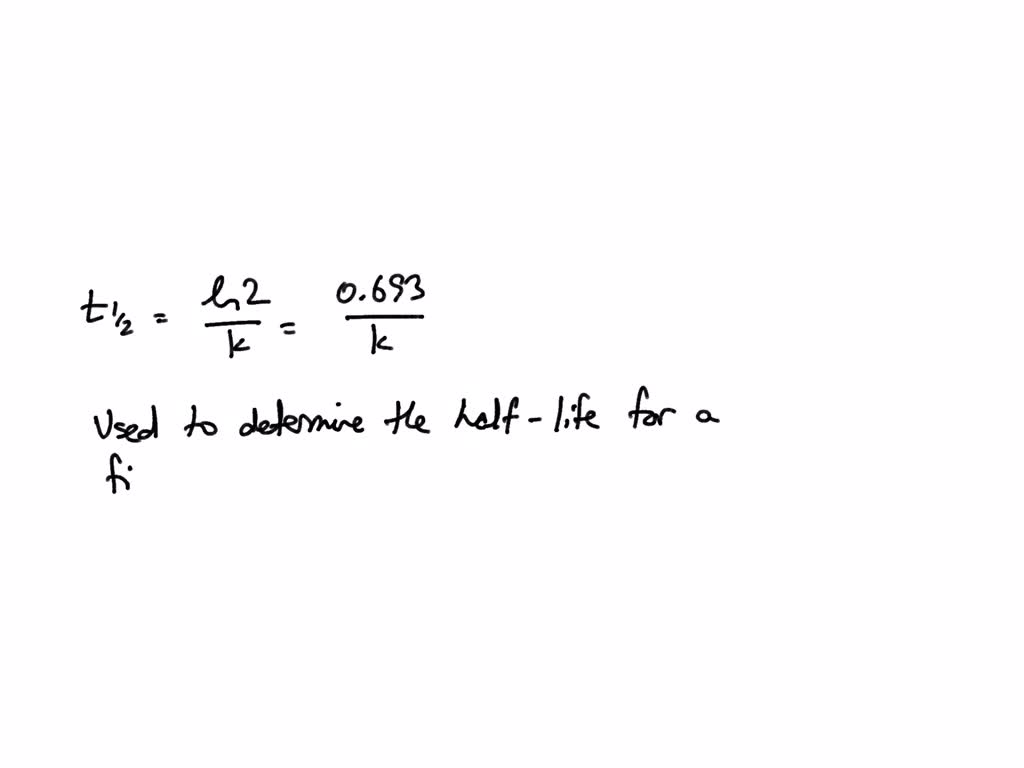 t1/2 = ln2/k = 0.693/k
Used to determine the half-life for a
fi